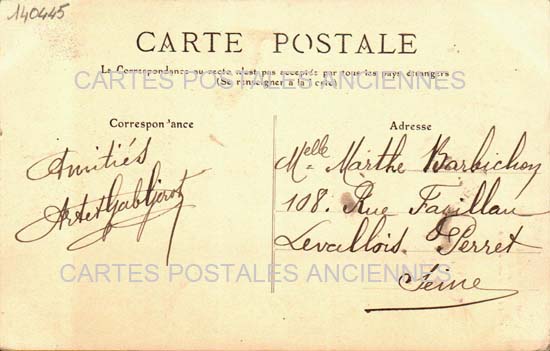 140445
CARTE POSTALE
La Correspondance au recto n'est pas acceptée par tous les pays étrangers
(Se renseigner à la Poste)
CARTES POSTALES ANCIENNES
Correspon'ance
Amitiés
Adresse
Melle Marthe Barbichon
108. Rue Fazillau
Levallois. Perret
Seine
CARTES POSTALES ANCIENNES